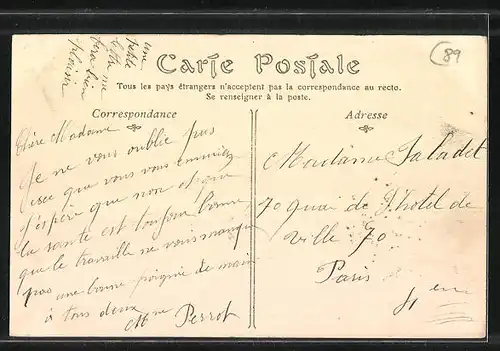 une
petite
lettre me
fera bien
plaisir
Carte Postale
89
Tous les pays étrangers n'acceptent pas la correspondance au recto.
Se renseigner à la poste.
Correspondance
Adresse
Chère Madame
Je ne vous oublie pas
que vous vous ennuiez
j'espère que non et que
la santé est toujour bonne
que le travaille ne vous manque
pas une bonne poignie de main
à tous deux
Mme Perrot
Madame Saladet
70 quai de l'hotel de
Ville 70
Paris
4 em